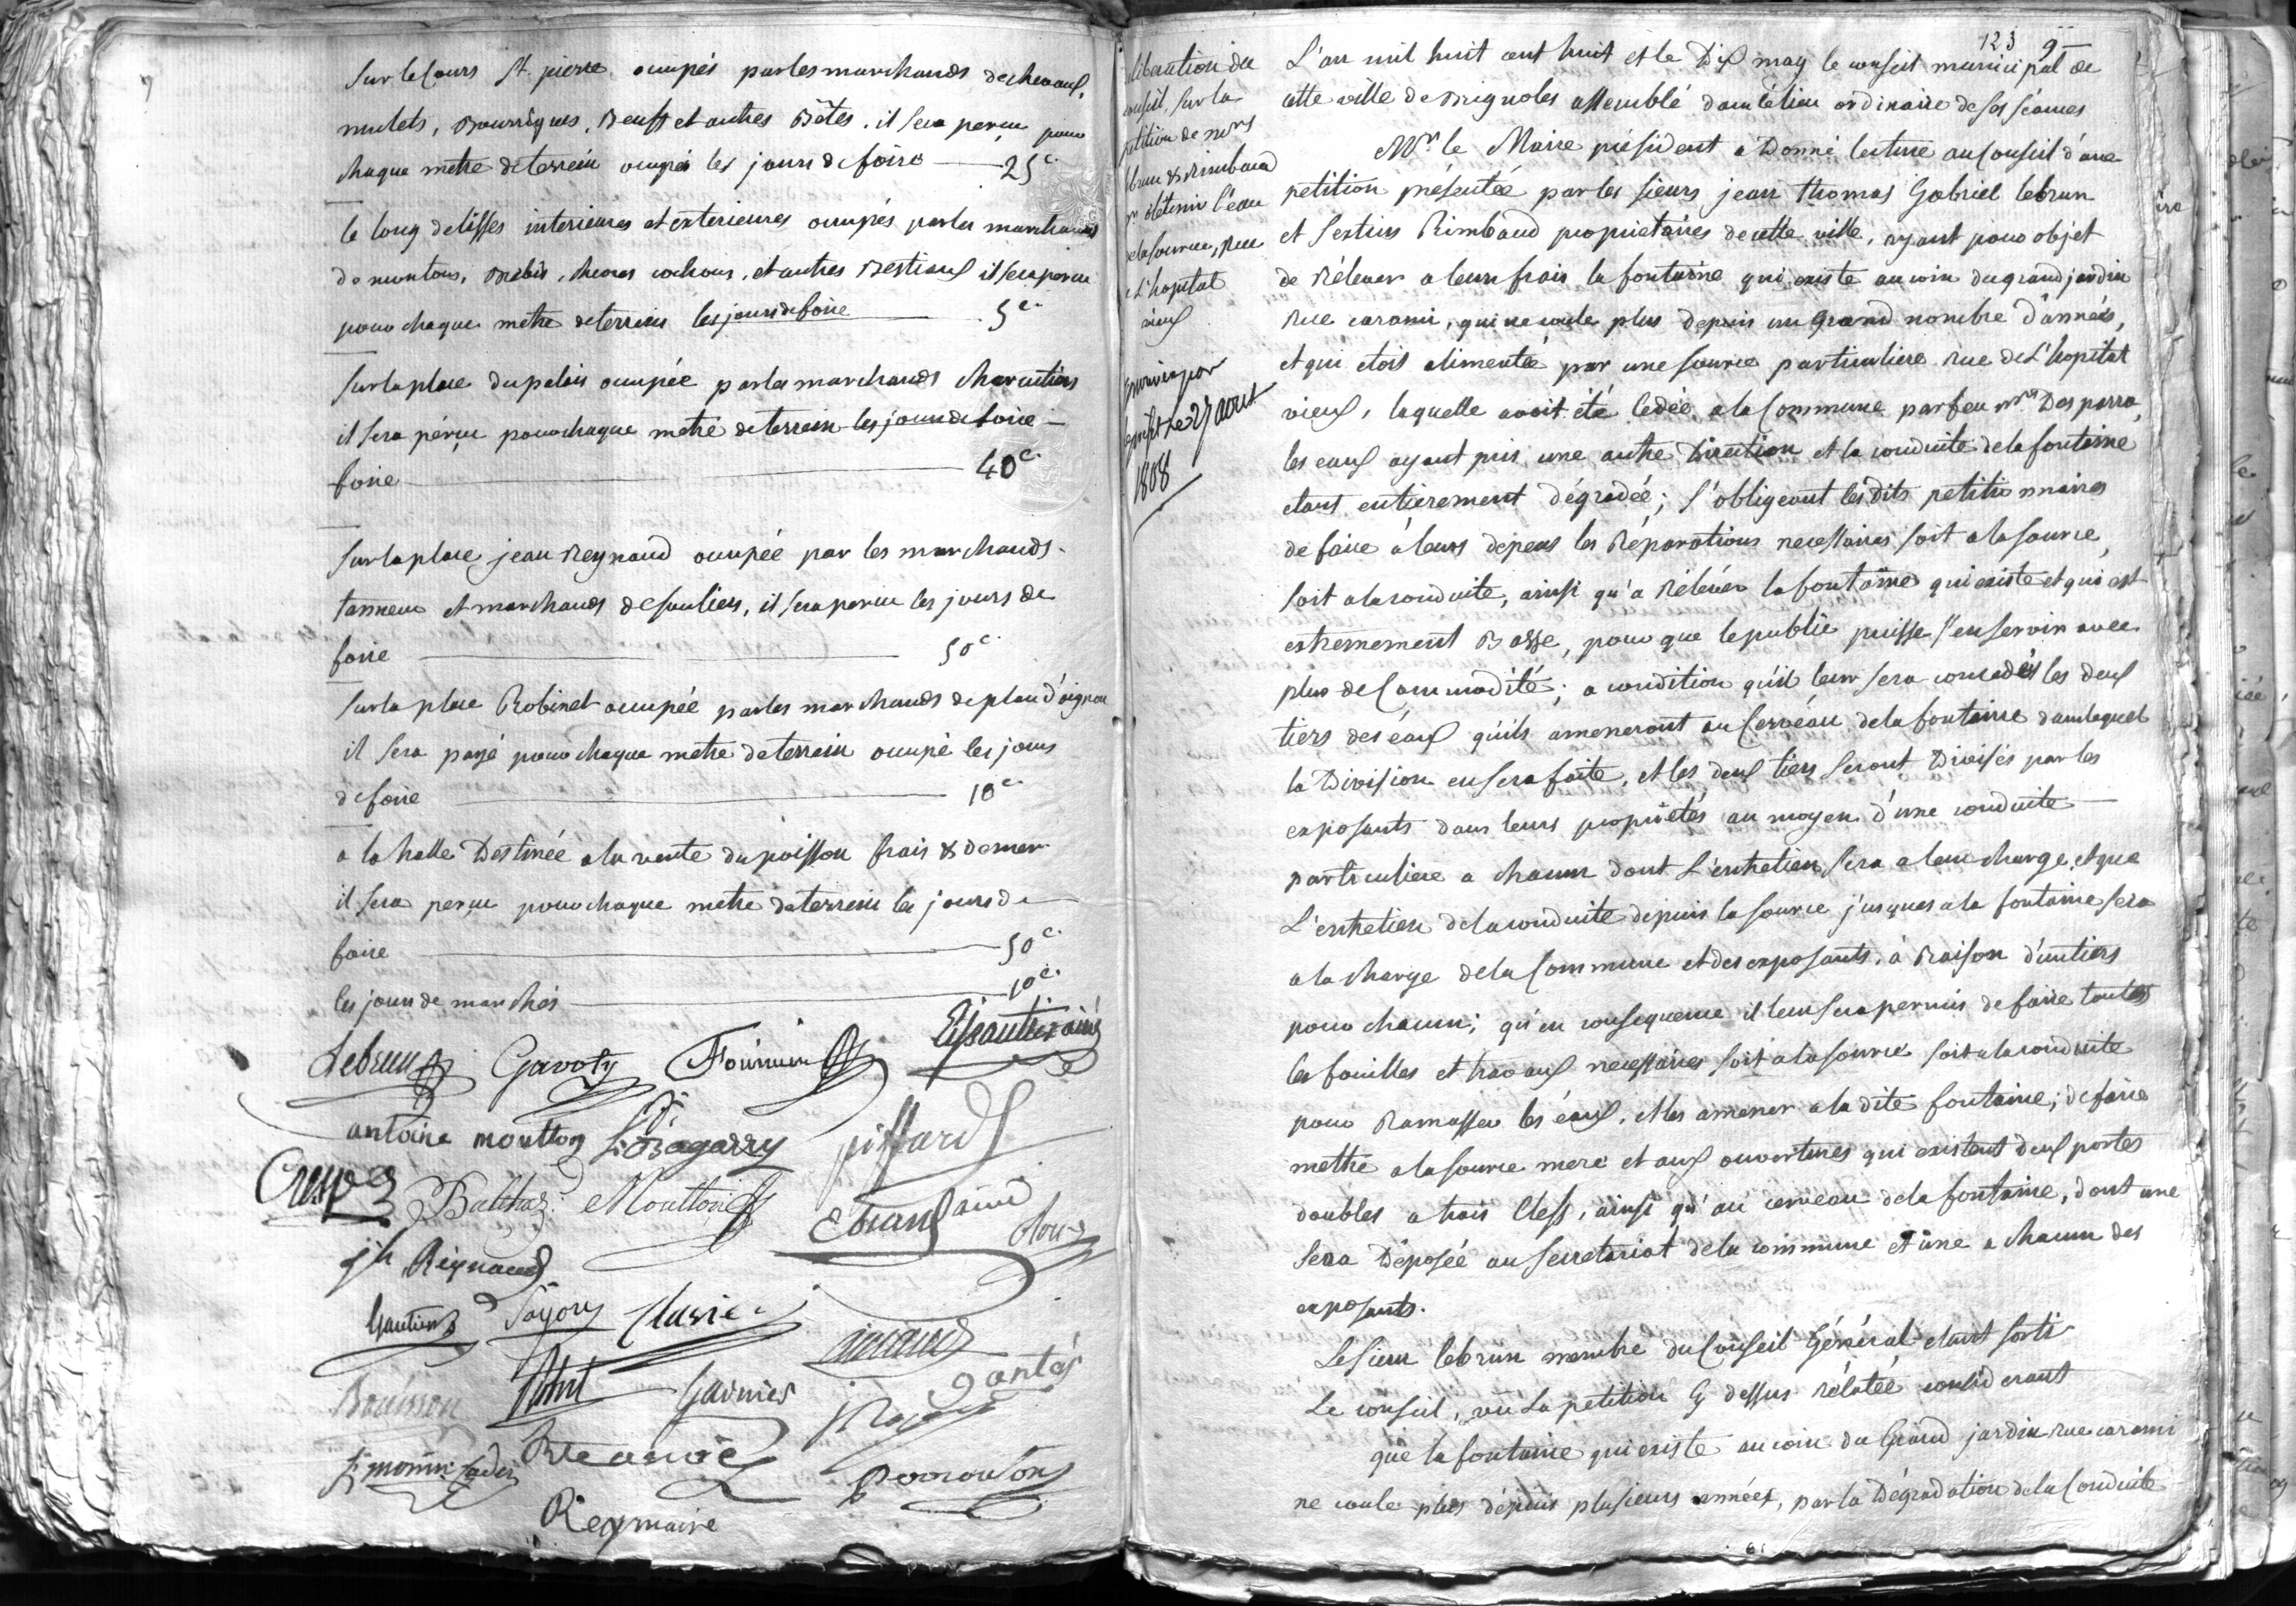 Sur le Cours St. pierre occupés par les marchands de chevaux,
mulets, Bourriques, Beufs et autres Bêtes, il sera perçu pour
chaque métre de terrein occupés les jours de foire 25 c.
le long de lisses interieures et exterieures occupés par les marchands
de moutons, Brebis, chevres cochons, et autres Bestiaux il sera perçu
pour chaque metre de terrein les jours de foire 5 c.
Sur la place du palais occupée par les marchands charcutiers
il sera pérçu pour chaque metre de terrein les jours de foire
foire 40 c.
Sur la place jean Reynaud occupée par les marchands
tanneur et marchands de souliers, il sera perçu les jours de
foire 50 c.
Sur la place Robinet occupée par les marchands de plan d'oignon
il sera payé pour chaque métre de terrein occupé les jours
de foire 10 c.
a la halle Destinée a la vente du poisson frais & de mer
il sera perçu pour chaque métre de terrein les jours de
foire 50 c.
les jours de marchés 10 c.
Lebrun Gavoty Fournier ainé
antoine moutton piffard
Crespe Balthaz. Moutton ainé
jh Reynaud
Gautier
Bouisson Garnier
Rey maire
123 9
liberation du
conseil, sur la
petition de mrs
lebrun & Rimbaud
pr obtenir l'eau
de la source, Rue
de L'hopital
vieux
le prefet le 27 aout
1808
L'an mil huit cent huit et le Dix may le conseil municipal de
cette ville de Brignoles assemblé dans le lieu ordinaire de ses séances
Mr. le Maire président a Donné lecture au Conseil d'une
petition présentée par les sieurs jean thomas Gabriel lebrun
et Sextius Rimbaud proprietaires de cette ville, ayant pour objet
de Rélever a leurs frais la fontaine qui existe au coin du grand jardin
Rue carami, qui ne coule plus Depuis un Grand nombre d'années,
et qui etoit alimentée par une source particuliere rue de L'hopital
vieux, laquelle avoit été Cedée a la Commune par feu
les eaux ayant pris une autre Direction et la conduite de la fontaine
etant entierement dégradée; S'obligeant les dits petitionnaires
de faire à leurs dépens les Réparations necessaires soit a la source,
soit a la conduite, ainsi qu'a Rélever la fontaine qui existe et qui est
extremement Basse, pour que le public puisse s'en servir avec
plus de Commodité; a condition qu'il leur sera concedés les deux
tiers des éaux qu'ils ameneront au Cerveau de la fontaine dans lequel
la Division en sera faite, et les deux tiers seront Divisés par les
exposants dans leurs propriétés au moyen d'une conduite
particuliere a chacun dont L'entretien sera a leur charge, et que
L'entretien de la conduite depuis la source jusques a la fontaine sera
a la charge de la Commune et des exposants, à Raison d'un tiers
pour chacun; qu'en consequence il leur sera permis de faire toutes
les fouilles et travaux necessaires soit a la source soit a la conduite
pour Ramasser les éaux, et les amener a la dite fontaine; de faire
mettre a la source mere et aux ouvertures qui existent deux portes
doubles a trois Clefs, ainsi qu'au cerveau de la fontaine, dont une
sera Déposée au Secretariat de la commune et une a chacun des
exposants.
Le Sieur lebrun membre du Conseil Général étant sorti
Le conseil, vu La petition Cy dessus rélatée considerant
que la fontaine qui existe au coin du Grand jardin rue carami
ne coule plus dépuis plusieurs années, par la Dégradation de la Conduite